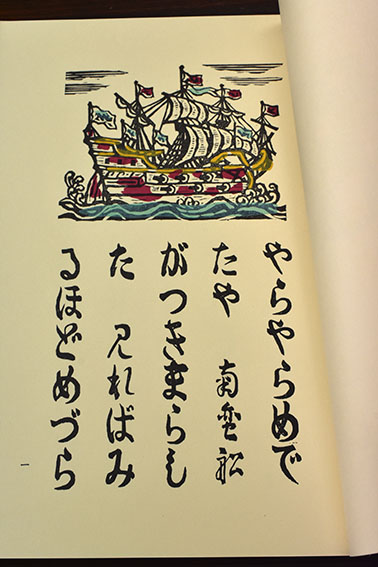 やらやらめで
たや　南蛮船
がつきまらし
た　見ればみ
るほどめづら
一